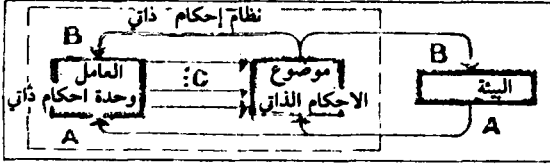 نظام إحكام ذاتي
B
B
العامل
وحدة احكام ذاتي
C:
موضوع
الاحكام الذاتي
البيئة
A
A